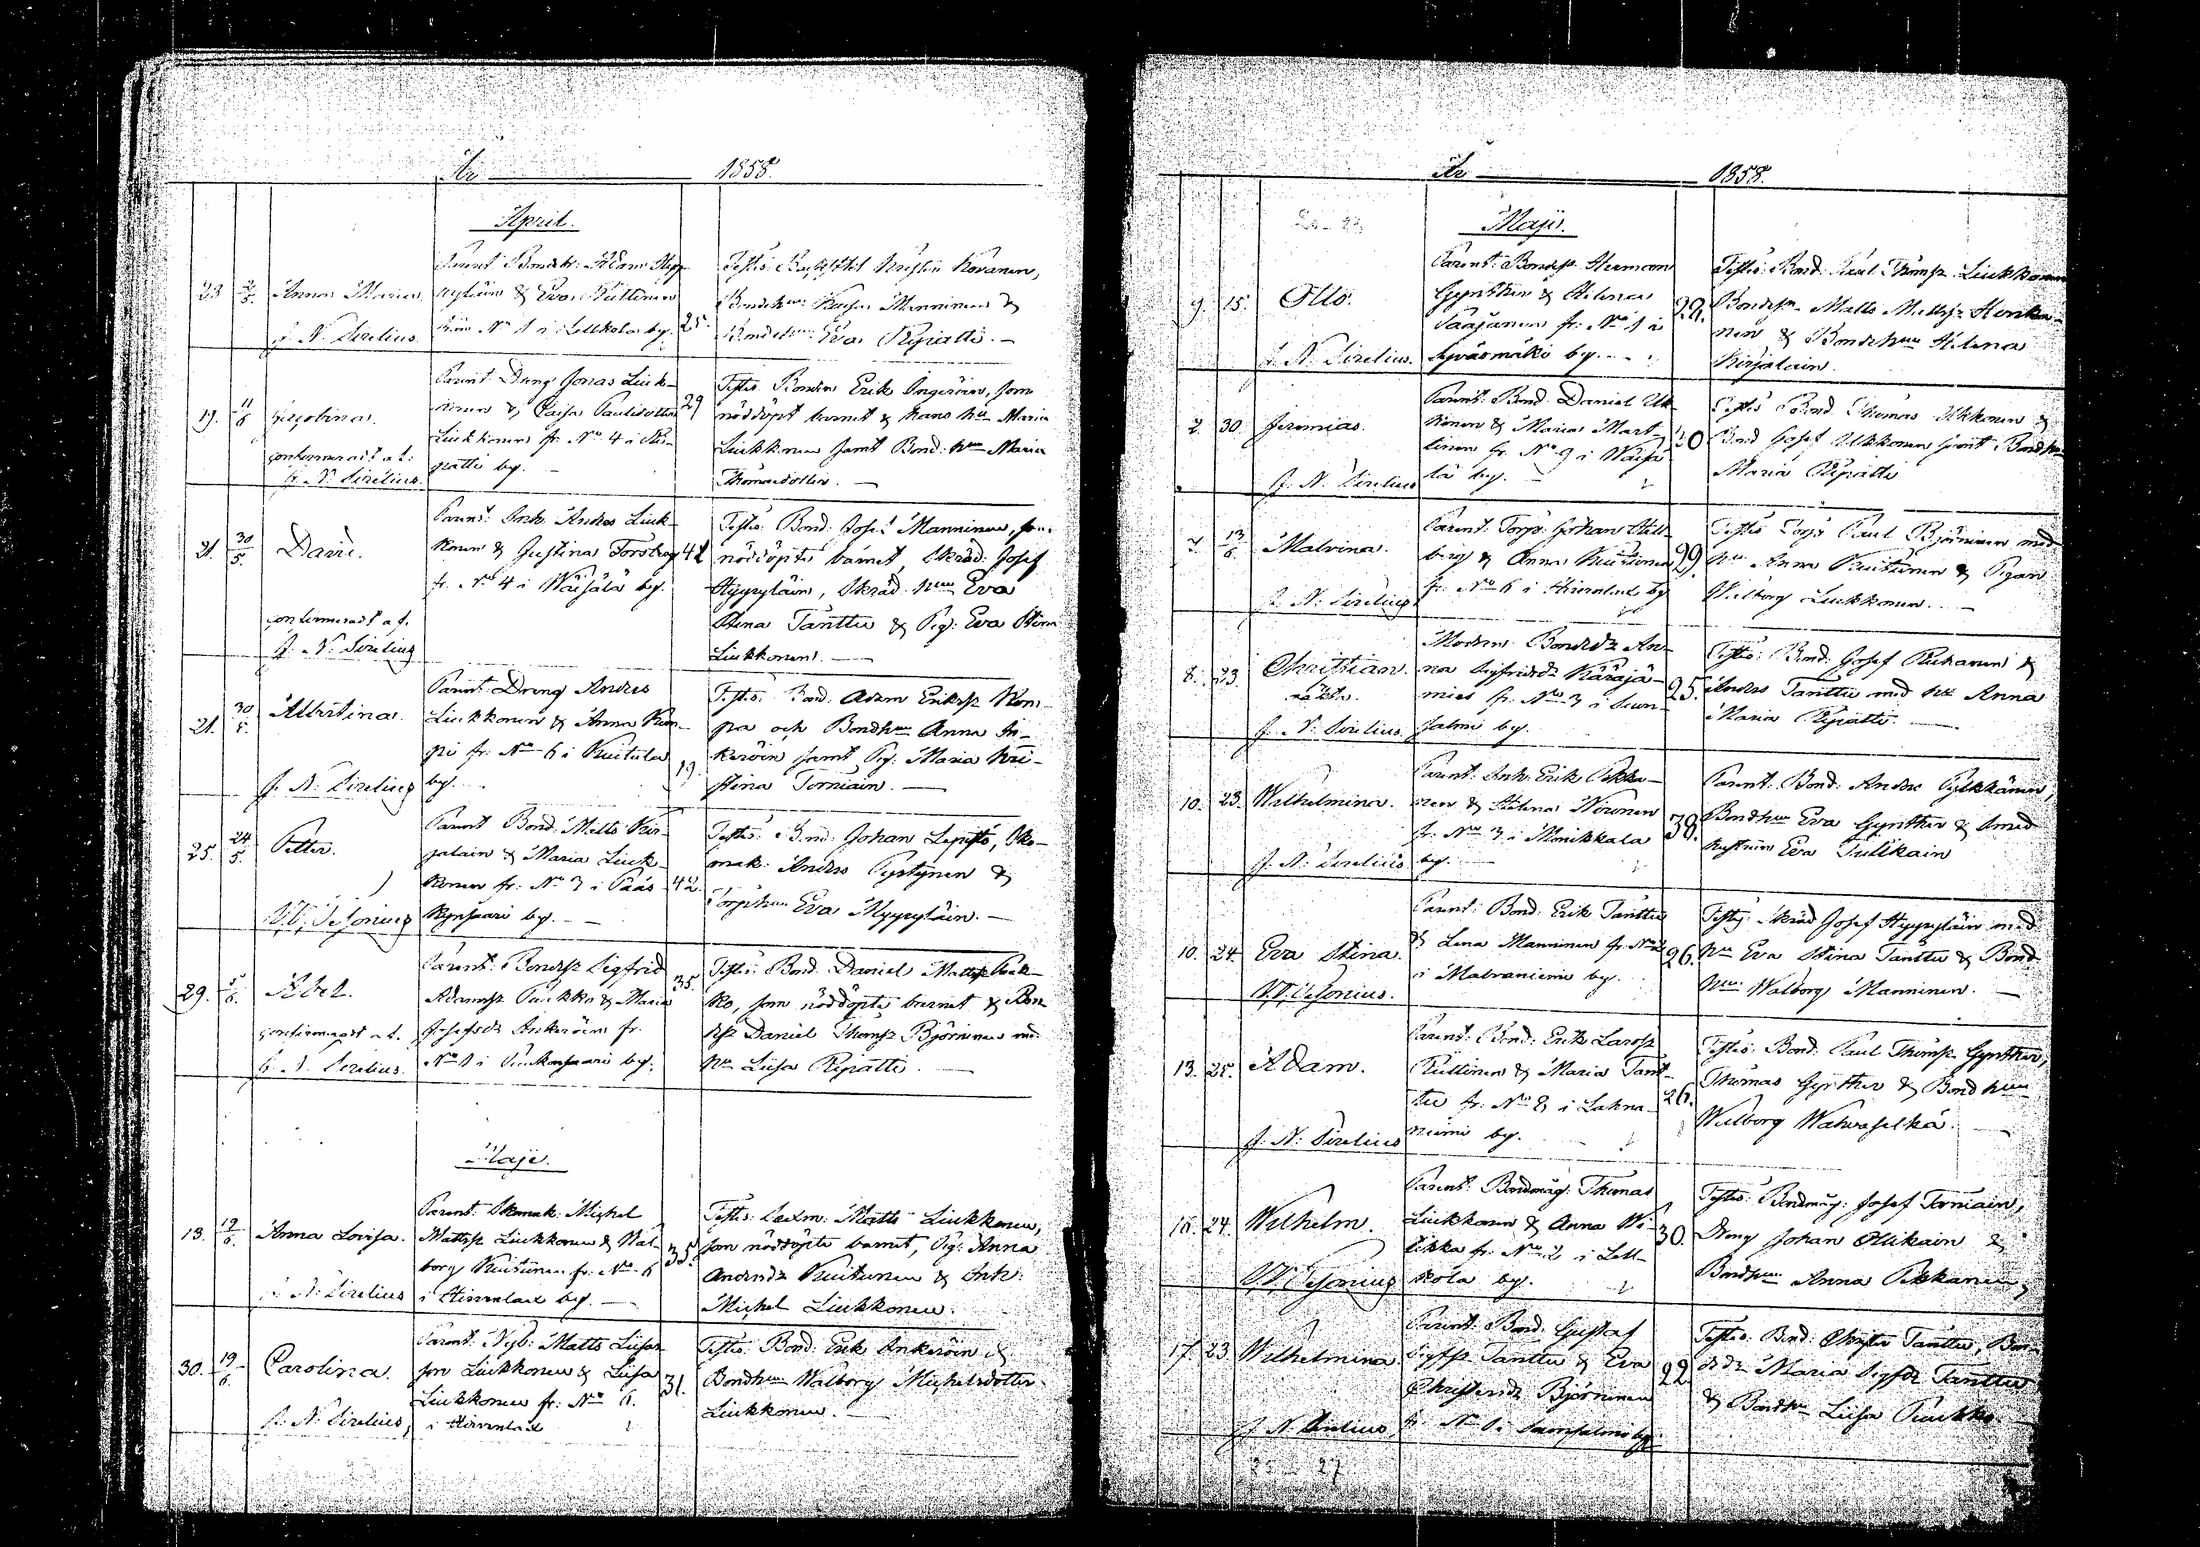 År 1858.
April.
23 2/5. Anna Maria
J. N. Sirelius.
Parent: Bondes: Adam Hyy-
ryläin & Eva Kuittinen
från No 1 i Lellkola by. 25.
Kristin Kovanen,
Bondehm Manninen &
Bondehm Eva Repatti. —
19. confirmeradt af:
J. N. Sirelius.
Parent: Dreng Jonas Liuk-
konen & Caisa Paulsdotter 29
Liukkonen fr: No 4 i
patti by. —
Testes: Bonden Erik Ingeröin, som
nöddöpt barnet & hans hu Maria
Liukkonen samt Bond: hm Maria
Thomasdotter. —
21. 30/5. David.
confirmeradt af.
J. N. Sirelius
Parent: Inh: Andres Liuk-
konen & Justina Forsberg 42
fr. No 4 i Wäisälä by.
Testes: Bond: Josef Manninen, som
nöddöpte barnet, Skräd: Josef
Hyyryläin, Skräd. hm Eva
Stina Tanttu & Pig: Eva Stina
Liukkonen. —
21. 30/5. Albertina.
J. N. Sirelius
Parent: Dreng Andres
Liukkonen & Anna Kem-
pi fr. No 6 i Kuitula
by. 19.
Testes: Bond: Adam Eriksr Kem-
pa och Bondhm Anna In-
keröin samt Pig: Maria Kri-
stina Torniain. —
25. 24/5 Petter.
W. Desonius
Parent Bond: Matts Kir-
jalain & Maria Liuk-
konen fr: No 3 i Pääs 42.
kynsaari by. —
Testes: Bond: Johan Lepistö, Sko-
mak: Andres Pystynen &
Torpshm Eva Hyyryläin. —
29. 5/6. Abel.
confirmeradt af.
J. N. Sirelius.
Parent: Bondsr Sigfrid
Adamsr Puukko & Maria 35.
Josefsdr Ankeröin fr.
No 1 i by:
Testes: Bond: Daniel Mattsr Puuk-
ko, som nöddöpte barnet & Bon-
dsr Daniel Thomsr Björninen med
hu Liisa Repatti. —
Maji.
13. 19/6. Anna Lovisa.
J. N. Sirelius
Parent: Skomak: Michel
Mattsr Liukkonen & Wal-
borg Kuitunen fr: No 6 35.
i Hirvenlax by. —
Testes: Laxm: Matts Liukkonen,
som nöddöpte barnet, Pig: Anna
Andersdr Kuitunen & Inh:
Michel Liukkonen.
30. 19/6. Carolina.
J. N. Sirelius,
Parent: Nyb: Matts
son Liukkonen & Liisa
Liukkonen fr: No 6. 31.
i Hirvenlax
Testes: Bond: Erik Ankeröin &
Bondhm Walborg Michelsdotter
Liukkonen. —
År 1858.
Maji.
9. 15. Otto.
J. N. Sirelius.
Parent: Bondsr Herman
Gynther & Helena
Paajanen fr: No 1 i 22.
Syväsmäki by.
Testes: Bond: Paul Thomsr Liukkonen
Bondsr Matts Mattsr Honka-
nen & Bondehm Helena
Kirjalain.
2. 30. Jeremias.
J. N. Sirelius
Parent: Bond: Daniel Uk-
konen & Maria Mart-
tinen fr. No 9 i Wäisä 30
lä by. —
Testes Bond: Thomas Ukkonen &
Bond Josef Ukkonen samt Bondhm
Maria Repatti
7. 13/6 Malvina.
J. N. Sirelius
Parent: Torp: Johan Häll-
berg & Anna Kuitunen 29.
fr. No 6 i Hirvenlax by
Testes Torp: Paul Björninen med
hu Anna Kuitunen & Pigan
Walborg Liukkonen. —
8. 23. Christian.
oäkta.
J. N. Sirelius.
Modren: Bondedr An-
na Sigfridsdr Käräjä-
mies fr. No 3 i Suon- 25.
salmi by.
Testes: Bond: Josef Pukanen &
Anders Tanttu med hu Anna
Maria Repatti. —
10. 23. Wilhelmina.
J. N. Sirelius
Parent: Inh: Erik Pekka-
nen & Helena Noronen
fr. No 3 i Monikkala 38.
by. —
Parent: Bond: Andre Pylkkänen,
Bondhm Eva Gynther & Smed-
hustrun Eva Tulikain
10. 24. Eva Stina.
W. Desonius.
Parent: Bond: Erik Tanttu
& Lena Manninen fr. No 2 26.
i Matraniemi by.
Testes: Skräd Josef Hyyryläin med
hu Eva Stina Tanttu & Bond
hm: Walborg Manninen. —
13. 25. Adam.
J. N. Sirelius
Parent: Bond: Erik Larsr
Kuittinen & Maria Tant-
tu fr. No 8 i Lahna- 26.
niemi by.
Testes: Bond: Paul Thomsr Gynther,
Thomas Gynther & Bond hm
Walborg Wahvaselkä. —
16. 24. Wilhelm.
W. Desonius
Parent: Bondmåg: Thomas
Liukkonen & Anna Wi-
likka fr. No 2 i Lell- 30.
kola by.
Testes: Bondmåg: Josef Torniain,
Dreng Johan Ollikain &
Bondhm Anna Pekkanen,
17. 23 Wilhelmina
J. N. Sirelius
Parent: Bond: Gustaf
Sigfsr Tanttu & Eva
Christersdr Björninen 22.
fr. No 1 i Suonsalmi by
Testes: Bond: Christer Tanttu, Bon-
dedr Maria Sigfdr Tanttu
& Bondhm Liisa Puukko